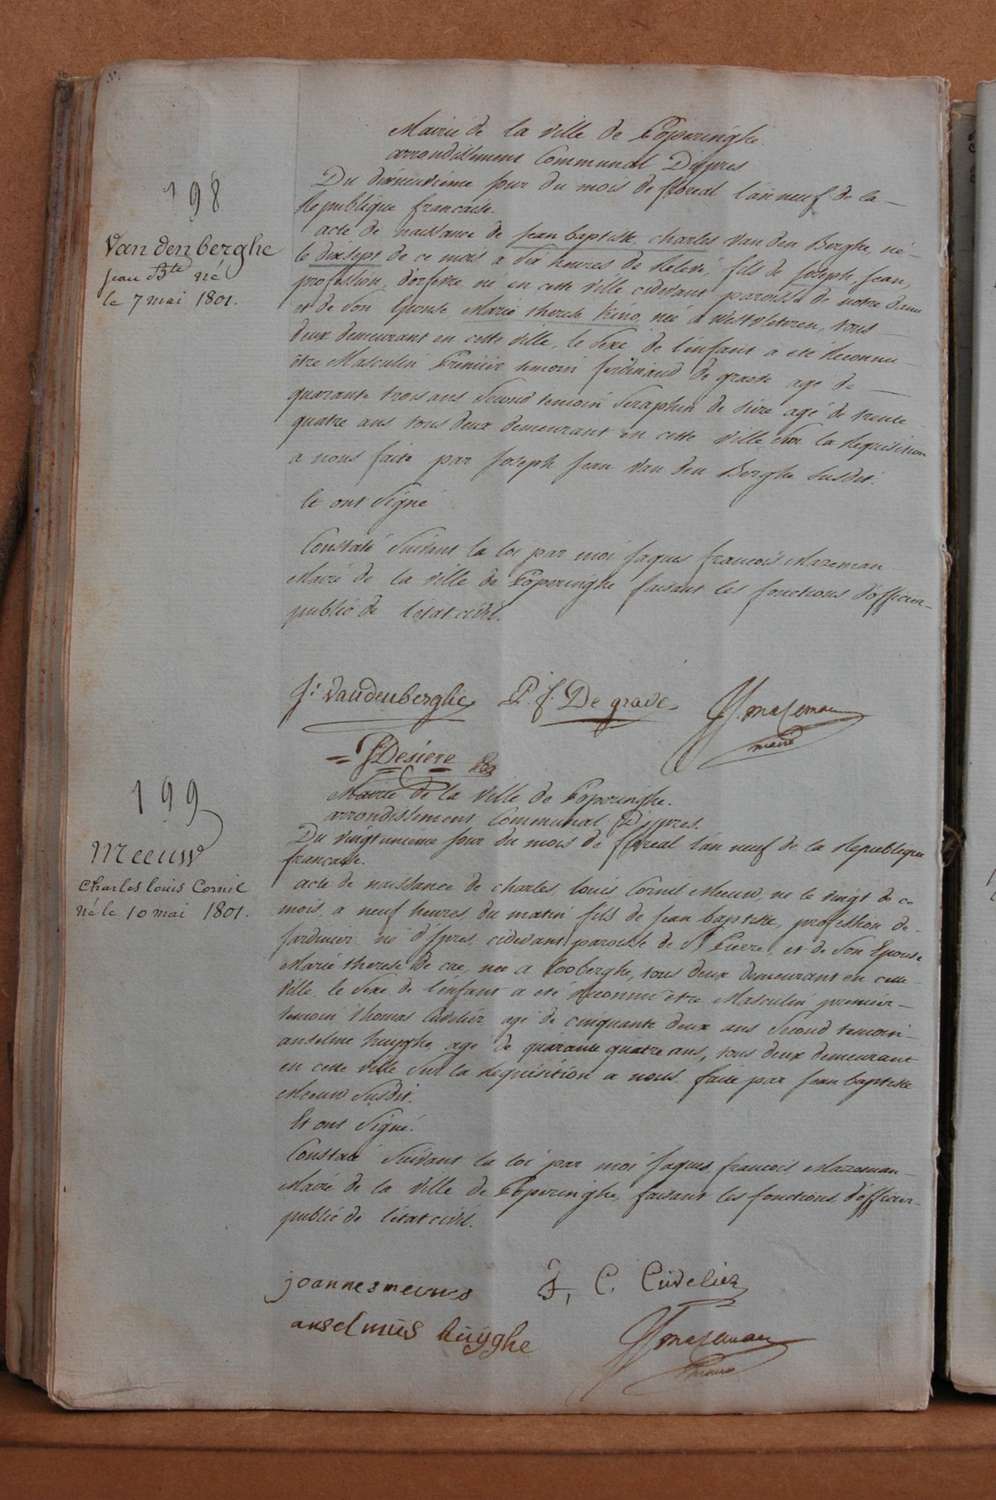 198
Vandenberghe
Jean Bte né
le 7 mai 1801.
Mairie de la ville de Poperinghe.
arrondissement Communal D'ypres
Du dixneuvième jour du mois de floreal l'an neuf de la
Republique francaise.
acte de naissance de Jean baptiste charles Van den Berghe, né
le dixsept de ce mois à six heures de relevé, fils de Joseph Jean,
profession d'orfevre né en cette ville cidevant paroisse de notre dame
et de son Epouse Marie therese Keno, née à Westvleteren, tous
deux demeurant en cette ville, le sexe de l'enfant a eté Reconnu
être Masculin Premier temoin ferdinand De graeve agé de
quarante trois ans Second temoin Seraphin de sire agé de trente
quatre ans tous deux demeurant en cette ville sur la Requisition
a nous faite par Joseph Jean Van den Berghe susdit.
et ont signé
Constaté suivant la loi par moi Jaques francois Mazeman
Maire de la ville de Poperinghe faisant les fonctions d'officier
public de l'état civil.
J: Vandenberghe P. f. De grave JJ. mazeman
maire
Desiere
199
Meeuw
Charles louis Cornil
né le 10 mai 1801.
Mairie de la Ville de Poperinghe.
arrondissement Communal D'ypres.
Du vingtunieme jour du mois de floreal l'an neuf de la Republique
francaise.
acte de naissance de charles louis Cornil Meeuw, né le vingt de ce
mois, a neuf heures du matin fils de Jean baptiste, profession de
Jardinier né d'ypres, cidevant paroisse de St Pierre, et de son Epouse
Marie therese De cae, née a Looberghe, tous deux demeurant en cette
ville, le sexe de l'enfant a eté Reconnu être Masculin premier
temoin thomas Cuvelier agé de cinquante deux ans second temoin
anselme huyghe agé de quarante quatre ans, tous deux demeurant
en cette ville sur la requisition a nous faite par Jean baptiste
Meeuw susdit.
Et ont signé.
Constaté suivant la loi par moi Jaques francois Mazeman
Maire de la ville de Poperinghe, faisant les fonctions d'officier
public de l'état civil.
joannes meuws T, C. Cüvelier
anselmüs hüyghe JJ mazeman
maire